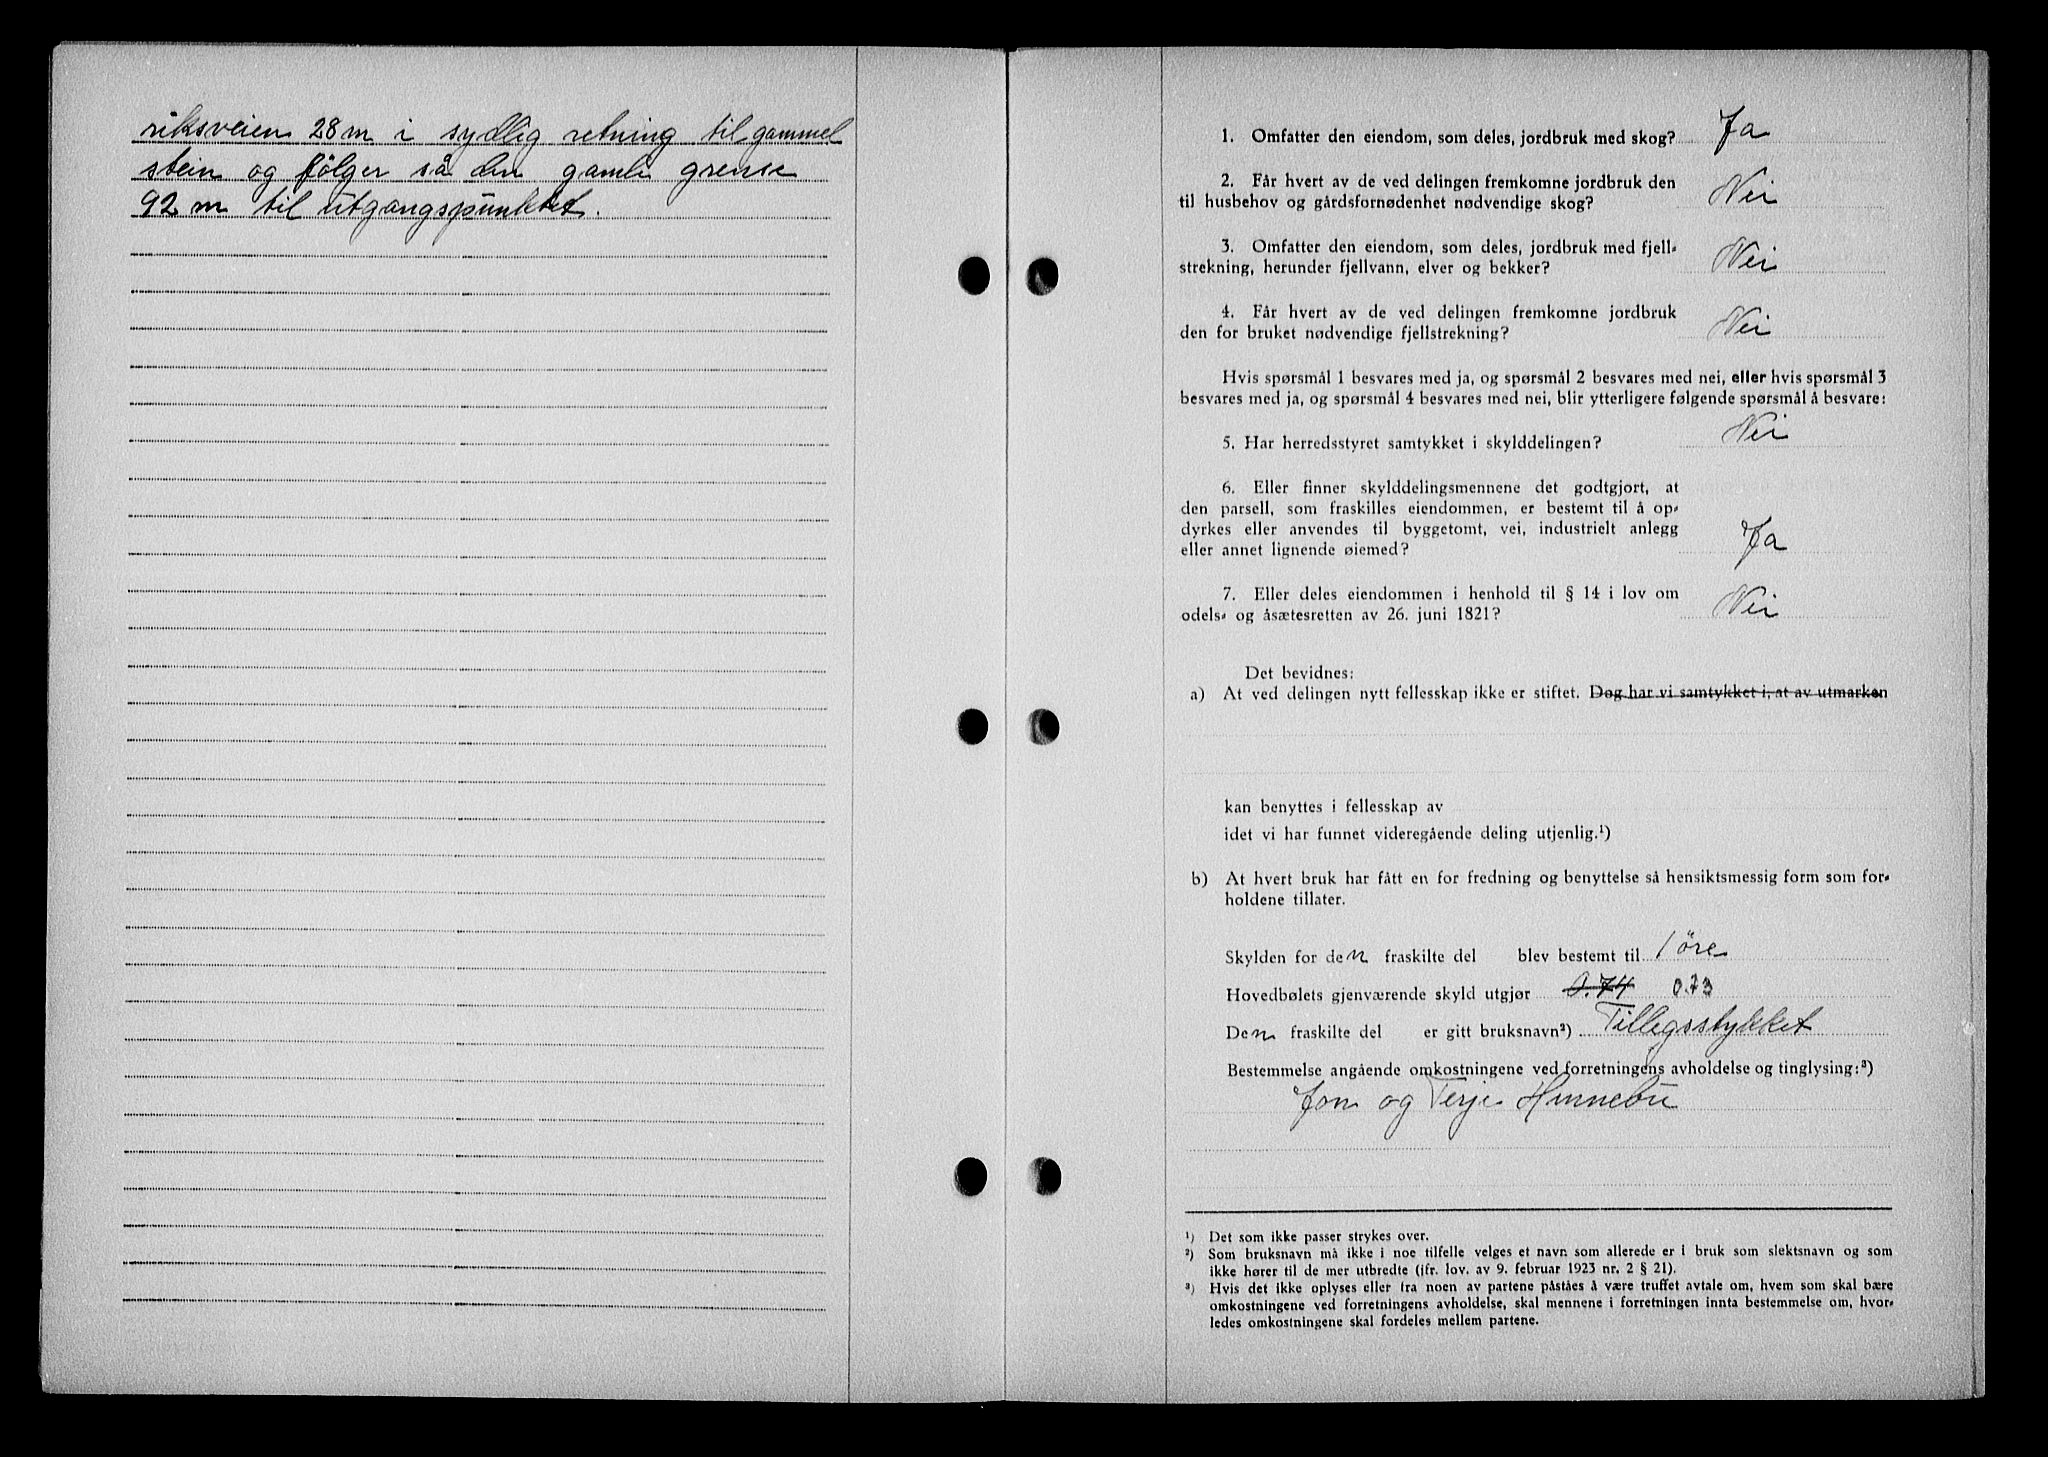 riksveien 28 m i sydlig retning til gammel
stein og følger så den gamle grense
92 m til utgangspunktet.
1. Omfatter den eiendom, som deles, jordbruk med skog? Ja
2. Får hvert av de ved delingen fremkomne jordbruk den
til husbehov og gårdsfornødenhet nødvendige skog? Nei
3. Omfatter den eiendom, som deles, jordbruk med fjell-
strekning, herunder fjellvann, elver og bekker? Nei
4. Får hvert av de ved delingen fremkomne jordbruk
den for bruket nødvendige fjellstrekning? Nei
Hvis spørsmål 1 besvares med ja, og spørsmål 2 besvares med nei, eller hvis spørsmål 3
besvares med ja, og spørsmål 4 besvares med nei, blir ytterligere følgende spørsmål å besvare:
5. Har herredsstyret samtykket i skylddelingen? Nei
6. Eller finner skylddelingsmennene det godtgjort, at
den parsell, som fraskilles eiendommen, er bestemt til å op-
dyrkes eller anvendes til byggetomt, vei, industrielt anlegg
eller annet lignende øiemed? Ja
7. Eller deles eiendommen i henhold til § 14 i lov om
odels- og åsætesretten av 26. juni 1821? Nei
Det bevidnes:
a) At ved delingen nytt fellesskap ikke er stiftet. Dog har vi samtykket i, at av utmarken
kan benyttes i fellesskap av
idet vi har funnet videregående deling utjenlig.¹)
b) At hvert bruk har fått en for fredning og benyttelse så hensiktsmessig form som for-
holdene tillater.
Skylden for den fraskilte del blev bestemt til 1 öre
Hovedbølets gjenværende skyld utgjør 0.74 0.73
Den fraskilte del er gitt bruksnavn²) Tillegsstykket
Bestemmelse angående omkostningene ved forretningens avholdelse og tinglysing:³)
Jon og Terje Hinnebu
¹) Det som ikke passer strykes over.
²) Som bruksnavn må ikke i noe tilfelle velges et navn som allerede er i bruk som slektsnavn og som
ikke hører til de mer utbredte (jfr. lov. av 9. februar 1923 nr. 2 § 21).
³) Hvis det ikke oplyses eller fra noen av partene påståes å være truffet avtale om, hvem som skal bære
omkostningene ved forretningens avholdelse, skal mennene i forretningen innta bestemmelse om, hvor-
ledes omkostningene skal fordeles mellem partene.